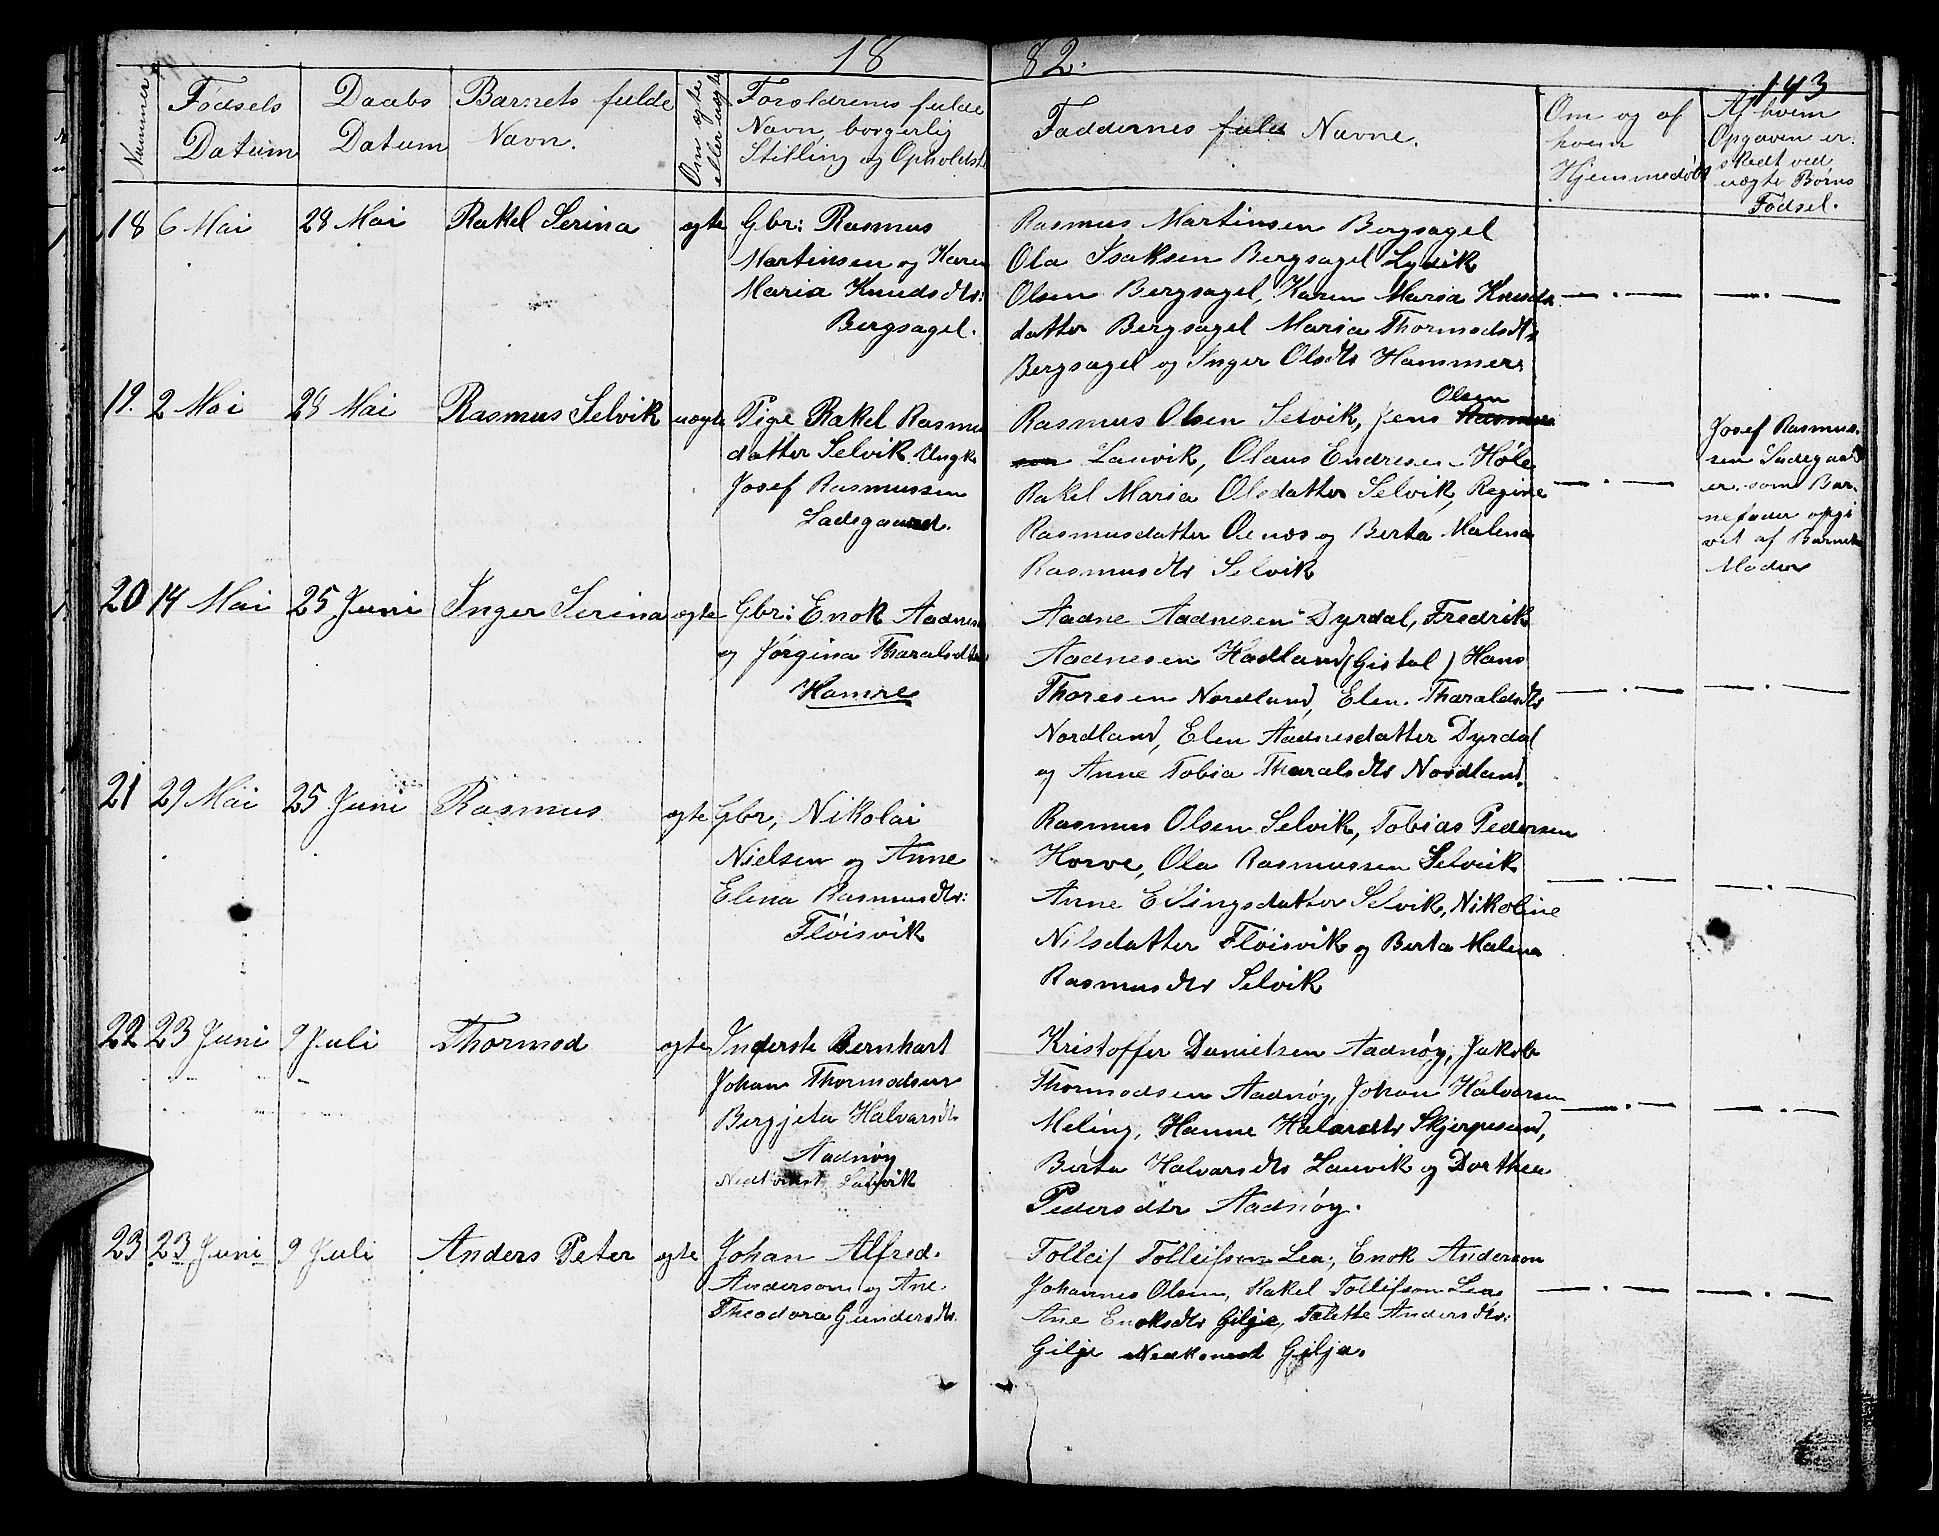 18 82.
143
Nummer
Fødsels Datum
Daabs Datum
Barnets fulde Navn.
Om ægte eller uægte
Forældrenes fulde Navn, borgerlig Stilling og Opholdst
Faddernes fulde Navne.
Om og af hvem Hjemmedøbt
Af hvem Opgaven er skedt ved uægte Børns Fødsel.
18 6 Mai 28 Mai Rakel Serina ægte
Gbr: Rasmus
Martinsen og Karen
Maria Knudsdtr:
Bergsagel.
Rasmus Martinsen Bergsagel
Ola Isaksen Bergsagel Lydik
Olsen Bergsagel, Karen Maria Knuds
datter Bergsagel Maria Thormodsdtr
Bergsagel og Inger Olsdtr Hammer
19. 2 Mai 28 Mai Rasmus Selvik uægte
Pige Rakel Rasmus
datter Selvik Ungk
Josef Rasmussen
Ladsgaard.
Olsen
Rasmus Olsen Selvik, Jens Rasmus
sen Lauvik, Olaus Endresen Høle
Rakel Maria Olsdatter Selvik, Regine
Rasmusdatter Oenæs og Berta Malena
Rasmusdtr Selvik
Josef Rasmus-
sen Ladsgaard
er som Bar-
nefader opgi
vet af Barnets
Moder
20 14 Mai 25 Juni Inger Serina ægte
Gbr: Enok Aadnes
og Jørgina Tharalsdtr
Hamre
Aadne Aadnesen Dyrdal, Fredrik
Aadnesen Hadland (Gistol) Hans
Thoresen Nordland, Elen Tharaldsdtr
Nordland, Elen Aadnesdatter Dyrdal
og Anne Tobia Tharalsdtr Nordland.
21 29 Mai 25 Juni Rasmus ægte
Gbr, Nikolai
Nielsen og Anne
Elena Rasmusdtr:
Fløisvik
Rasmus Olsen Selvik, Tobias Pedersen
Horve, Ola Rasmussen Selvik
Anne Elingsdatter Selvik, Nikoline
Nilsdatter Fløisvik og Berta Malena
Rasmusdtr Selvik
22 23 Juni 9 Juli Thormod ægte
Inderste Bernhart
Johan Thormodsen
Bergjeta Halvarsdtr
Aadnøy
Lauvik
Kristoffer Danielsen Aadnøy, Jakob
Thormodsen Aadnøy, Johan Halvarsen
Meling, Hanne Halvarsdtr Skjerpesund,
Berta Halvarsdtr Lauvik og Dorthea
Pedersdtr Aadnøy.
23 23 Juni 9 Juli Anders Peter ægte
Johan Alfred
Anderson og Ane
Theodora Gundersdtr.
Tolleif Tolleifson Lea, Enok Anderson
Johannes Olsen, Rakel Tolleifson Lea
Ane Enoksdtr Gilje, Talette Andersdtr:
Gilje Nedkonest Gilja.